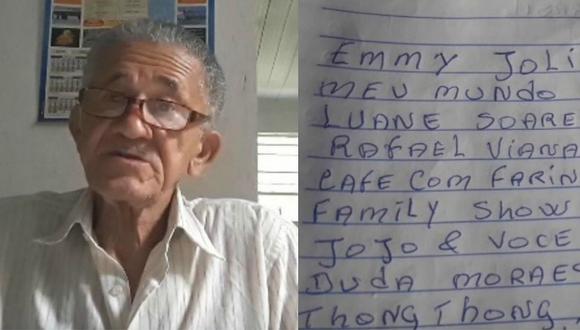 Emmy JoLi
MEU MUNDO
LUANE SOARE
RAFAEL VIANA
CAFE COM FARIN
FAMILY SHOW
JOJO & VOCE
DUDA MORAES
THONG THONG